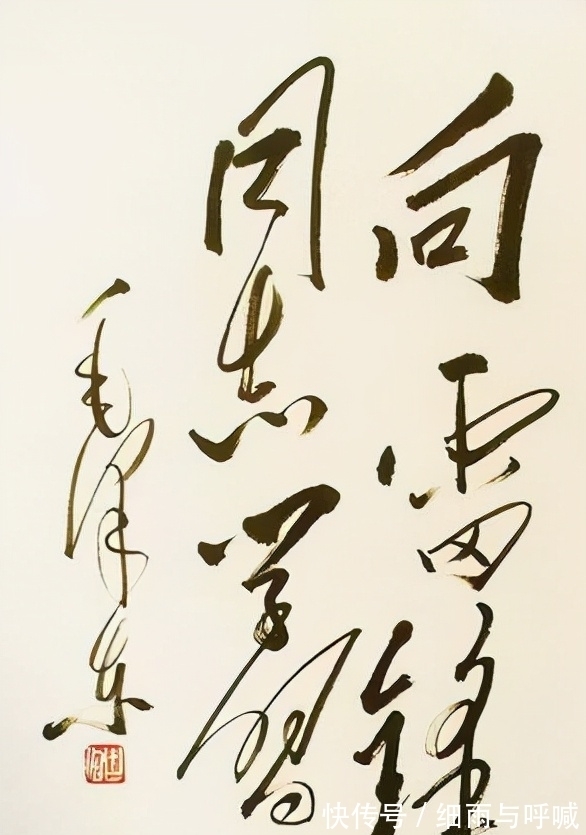 向雷锋
同志学习
毛泽东
快传号 / 细雨与呼喊